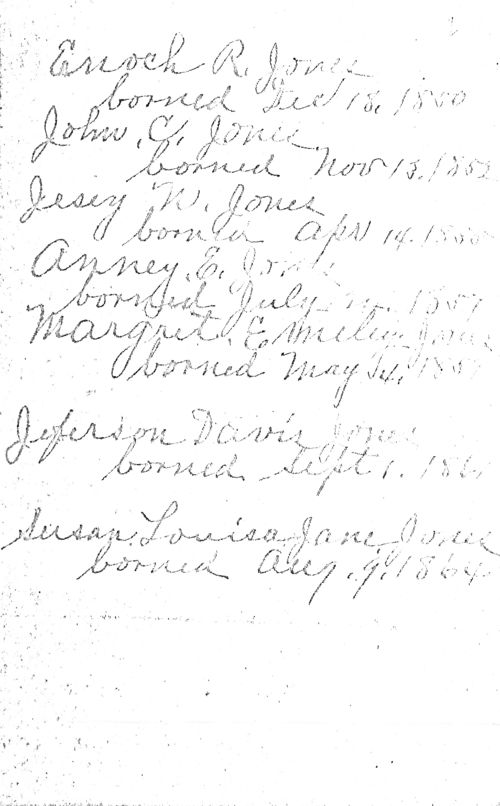 Enoch R. Jones
borned Dec 18, 1850
John, C, Jones
borned Nov 13, 1852
Jesey W. Jones
borned Apr 14, 185
Anney, E, Jones
borned July 1857
Margret, Emeline Jones
borned May 14, 185
Jeferson Davis Jones
borned Sept 1, 186
Susan, Louisa Jane Jones
borned Aug, 9, 1864